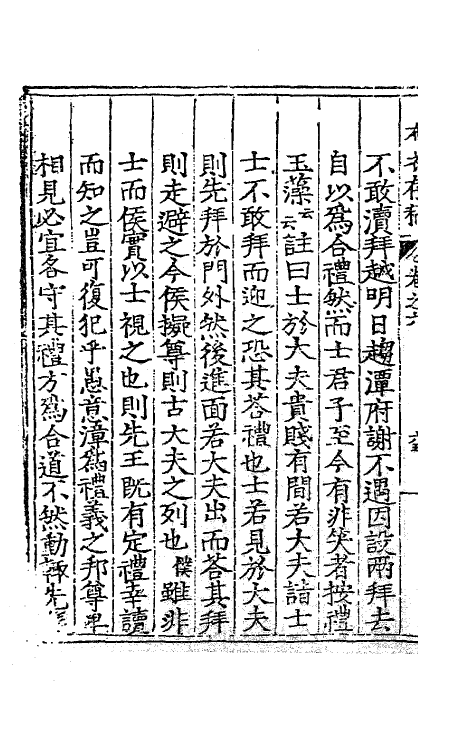 不敢瀆拜越明日趨潭府謝不遇因設兩拜去
自以爲合禮然而士君子至今有非笑者按禮
玉藻云云註曰士於大夫貴賤有間若大夫詣士
士不敢拜而迎之恐其答禮也士若見於大夫
則先拜於門外然後進面若大夫出而答其拜
則走避之今侯擬尊則古大夫之列也僕雖非
士而侯實以士視之也則先王既有定禮幸讀
而知之豈可復犯乎愚意漳爲禮義之邦尊卑
相見必宜各守其禮方爲合道不然動輒先